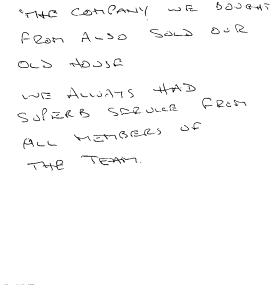 "THE COMPANY WE BOUGHT
FROM ALSO SOLD OUR
OLD HOUSE
WE ALWAYS HAD
SUPERB SERVICE FROM
ALL MEMBERS OF
THE TEAM.